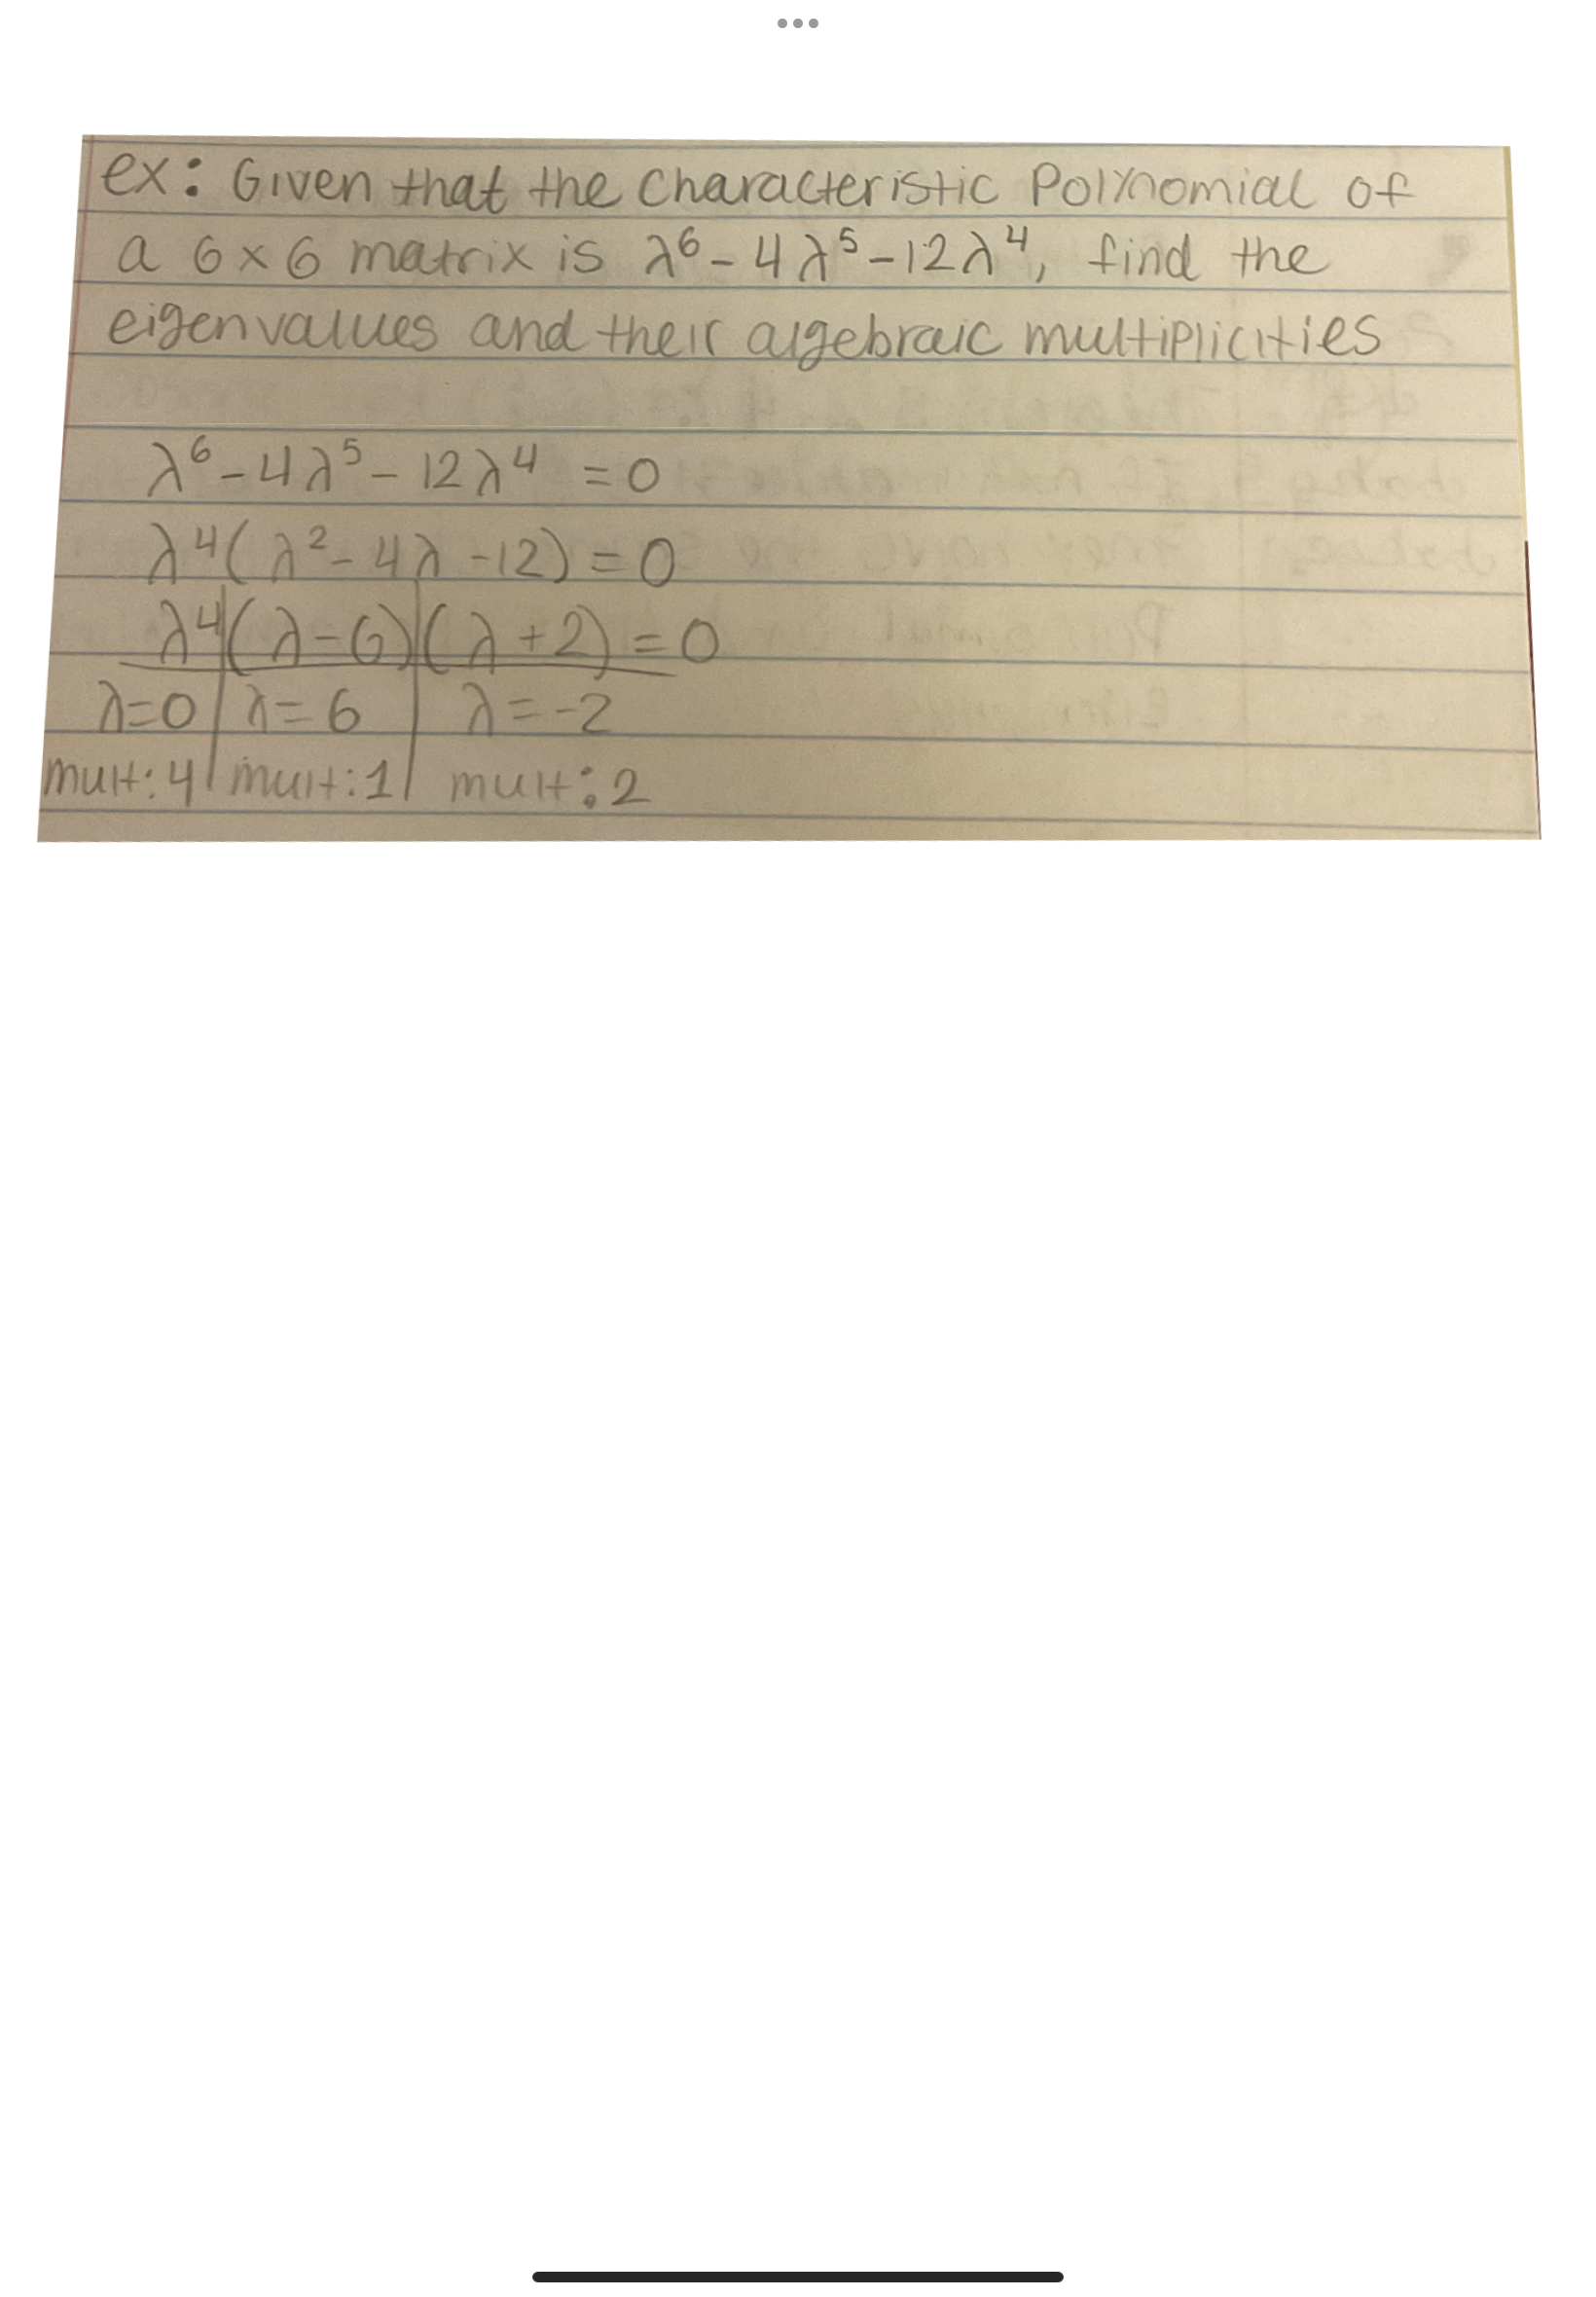 ex: Given that the Characteristic Polynomial of
a 6×6 matrix is λ⁶-4λ⁵-12λ⁴, find the
eigenvalues and their algebraic multiplicities
λ⁶-4λ⁵-12λ⁴ =0
λ⁴(λ²-4λ-12)=0
λ⁴|(λ-6)|(λ+2)=0
λ=0 | λ=6 | λ=-2
mult:4 | mult:1 | mult:2